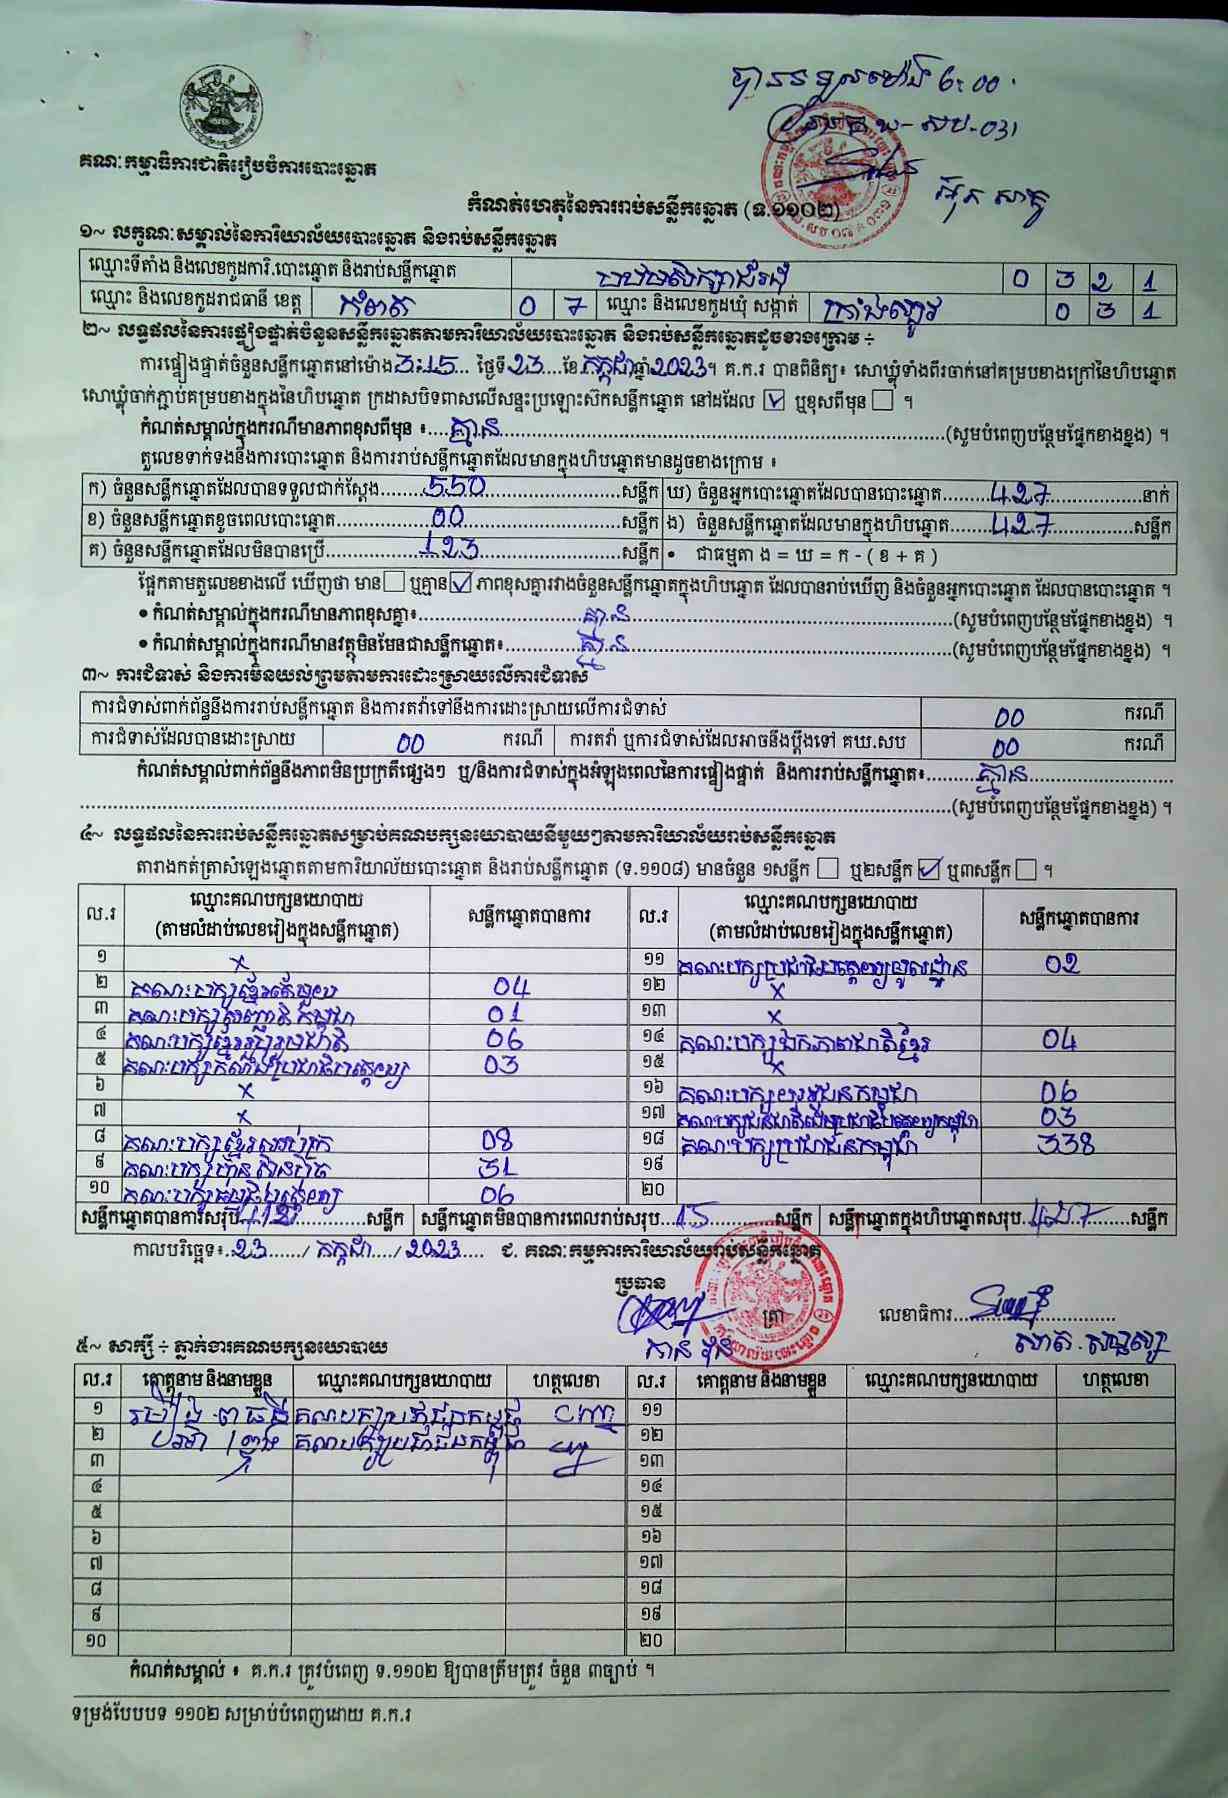 បានទទួលម៉ោង 6:00
គណៈកម្មាធិការជាតិរៀបចំការបោះឆ្នោត
កំណត់ហេតុនៃការរាប់សន្លឹកឆ្នោត (ទ.១១០២)
១~ លក្ខណៈសម្គាល់នៃការិយាល័យបោះឆ្នោត និងរាប់សន្លឹកឆ្នោត
ឈ្មោះទីតាំង និងលេខកូដការិ.បោះឆ្នោត និងរាប់សន្លឹកឆ្នោត 0 3 2 1
ឈ្មោះ និងលេខកូដរាជធានី ខេត្ត កំពត 0 7 ឈ្មោះ និងលេខកូដឃុំ សង្កាត់ 0 3 1
២~ លទ្ធផលនៃការផ្ទៀងផ្ទាត់ចំនួនសន្លឹកឆ្នោតតាមការិយាល័យបោះឆ្នោត និងរាប់សន្លឹកឆ្នោតដូចខាងក្រោម ÷
ការផ្ទៀងផ្ទាត់ចំនួនសន្លឹកឆ្នោតនៅម៉ោង 3:15 ថ្ងៃទី 23 ខែ កក្កដា ឆ្នាំ 2023 ។ គ.ក.រ បានពិនិត្យ៖ សោឃ្លុំទាំងពីរចាក់នៅគម្របខាងក្រៅនៃហិបឆ្នោត
សោឃ្លុំចាក់ភ្ជាប់គម្របខាងក្នុងនៃហិបឆ្នោត ក្រដាសបិទពាសលើសន្ទះប្រឡោះស៊កសន្លឹកឆ្នោត នៅដដែល ☑ ឬខុសពីមុន ☐ ។
កំណត់សម្គាល់ក្នុងករណីមានភាពខុសពីមុន ៖ គ្មាន (សូមបំពេញបន្ថែមផ្នែកខាងខ្នង) ។
តួលេខទាក់ទងនឹងការបោះឆ្នោត និងការរាប់សន្លឹកឆ្នោតដែលមានក្នុងហិបឆ្នោតមានដូចខាងក្រោម ៖
ក) ចំនួនសន្លឹកឆ្នោតដែលបានទទួលជាក់ស្តែង 550 សន្លឹក ឃ) ចំនួនអ្នកបោះឆ្នោតដែលបានបោះឆ្នោត 427 នាក់
ខ) ចំនួនសន្លឹកឆ្នោតខូចពេលបោះឆ្នោត 00 សន្លឹក ង) ចំនួនសន្លឹកឆ្នោតដែលមានក្នុងហិបឆ្នោត 427 សន្លឹក
គ) ចំនួនសន្លឹកឆ្នោតដែលមិនបានប្រើ 123 សន្លឹក • ជាធម្មតា ង = ឃ = ក - ( ខ + គ )
ផ្អែកតាមតួលេខខាងលើ ឃើញថា មាន ☐ ឬគ្មាន ☑ ភាពខុសគ្នារវាងចំនួនសន្លឹកឆ្នោតក្នុងហិបឆ្នោត ដែលបានរាប់ឃើញ និងចំនួនអ្នកបោះឆ្នោត ដែលបានបោះឆ្នោត ។
• កំណត់សម្គាល់ក្នុងករណីមានភាពខុសគ្នា៖ គ្មាន (សូមបំពេញបន្ថែមផ្នែកខាងខ្នង) ។
• កំណត់សម្គាល់ក្នុងករណីមានវត្ថុមិនមែនជាសន្លឹកឆ្នោត៖ គ្មាន (សូមបំពេញបន្ថែមផ្នែកខាងខ្នង) ។
៣~ ការជំទាស់ និងការមិនយល់ព្រមតាមការដោះស្រាយលើការជំទាស់
ការជំទាស់ពាក់ព័ន្ធនឹងការរាប់សន្លឹកឆ្នោត និងការតវ៉ាទៅនឹងការដោះស្រាយលើការជំទាស់ 00 ករណី
ការជំទាស់ដែលបានដោះស្រាយ 00 ករណី ការតវ៉ា ឬការជំទាស់ដែលអាចនឹងប្តឹងទៅ គឃ.សប 00 ករណី
កំណត់សម្គាល់ពាក់ព័ន្ធនឹងភាពមិនប្រក្រតីផ្សេងៗ ឬ/និងការជំទាស់ក្នុងអំឡុងពេលនៃការផ្ទៀងផ្ទាត់ និងការរាប់សន្លឹកឆ្នោត៖ គ្មាន
(សូមបំពេញបន្ថែមផ្នែកខាងខ្នង) ។
៤~ លទ្ធផលនៃការរាប់សន្លឹកឆ្នោតសម្រាប់គណបក្សនយោបាយនីមួយៗតាមការិយាល័យរាប់សន្លឹកឆ្នោត
តារាងកត់ត្រាសំឡេងឆ្នោតតាមការិយាល័យបោះឆ្នោត និងរាប់សន្លឹកឆ្នោត (ទ.១១០៨) មានចំនួន ១សន្លឹក ☐ ឬ២សន្លឹក ☑ ឬ៣សន្លឹក ☐ ។
ល.រ ឈ្មោះគណបក្សនយោបាយ (តាមលំដាប់លេខរៀងក្នុងសន្លឹកឆ្នោត) សន្លឹកឆ្នោតបានការ ល.រ ឈ្មោះគណបក្សនយោបាយ (តាមលំដាប់លេខរៀងក្នុងសន្លឹកឆ្នោត) សន្លឹកឆ្នោតបានការ
១ x ១១ គណៈបក្សប្រជាធិបតេយ្យមូលដ្ឋាន 02
២ គណៈបក្សខ្មែរតែមួយ 04 ១២ x
៣ គណៈបក្សសញ្ជាតិកម្ពុជា 01 ១៣ x
៤ គណៈបក្សខ្មែររួបរួមជាតិ 06 ១៤ គណៈបក្សឯកភាពជាតិខ្មែរ 04
៥ គណៈបក្សកម្លាំងប្រជាធិបតេយ្យ 03 ១៥ x
៦ x ១៦ គណៈបក្សយុវជនកម្ពុជា 06
៧ x ១៧ គណៈបក្សជនជាតិដើមប្រជាធិបតេយ្យកម្ពុជា 03
៨ គណៈបក្សខ្មែរអភិរក្ស 08 ១៨ គណៈបក្សប្រជាជនកម្ពុជា 338
៩ គណៈបក្សហ៊្វុនស៊ិនប៉ិច 31 ១៩
១០ គណៈបក្សធម្មាធិបតេយ្យ 06 ២០
សន្លឹកឆ្នោតបានការសរុប 412 សន្លឹក សន្លឹកឆ្នោតមិនបានការពេលរាប់សរុប 15 សន្លឹក សន្លឹកឆ្នោតក្នុងហិបឆ្នោតសរុប 427 សន្លឹក
កាលបរិច្ឆេទ៖ 23 / កក្កដា / 2023 ជ. គណៈកម្មការការិយាល័យរាប់សន្លឹកឆ្នោត
ប្រធាន
ត្រា លេខាធិការ
៥~ សាក្សី ÷ ភ្នាក់ងារគណបក្សនយោបាយ
ល.រ គោត្តនាម និងនាមខ្លួន ឈ្មោះគណបក្សនយោបាយ ហត្ថលេខា ល.រ គោត្តនាម និងនាមខ្លួន ឈ្មោះគណបក្សនយោបាយ ហត្ថលេខា
១ គណបក្សប្រជាជនកម្ពុជា ១១
២ គណបក្សប្រជាជនកម្ពុជា ១២
៣ ១៣
៤ ១៤
៥ ១៥
៦ ១៦
៧ ១៧
៨ ១៨
៩ ១៩
១០ ២០
កំណត់សម្គាល់ ៖ គ.ក.រ ត្រូវបំពេញ ទ.១១០២ ឱ្យបានត្រឹមត្រូវ ចំនួន ៣ច្បាប់ ។
ទម្រង់បែបបទ ១១០២ សម្រាប់បំពេញដោយ គ.ក.រ